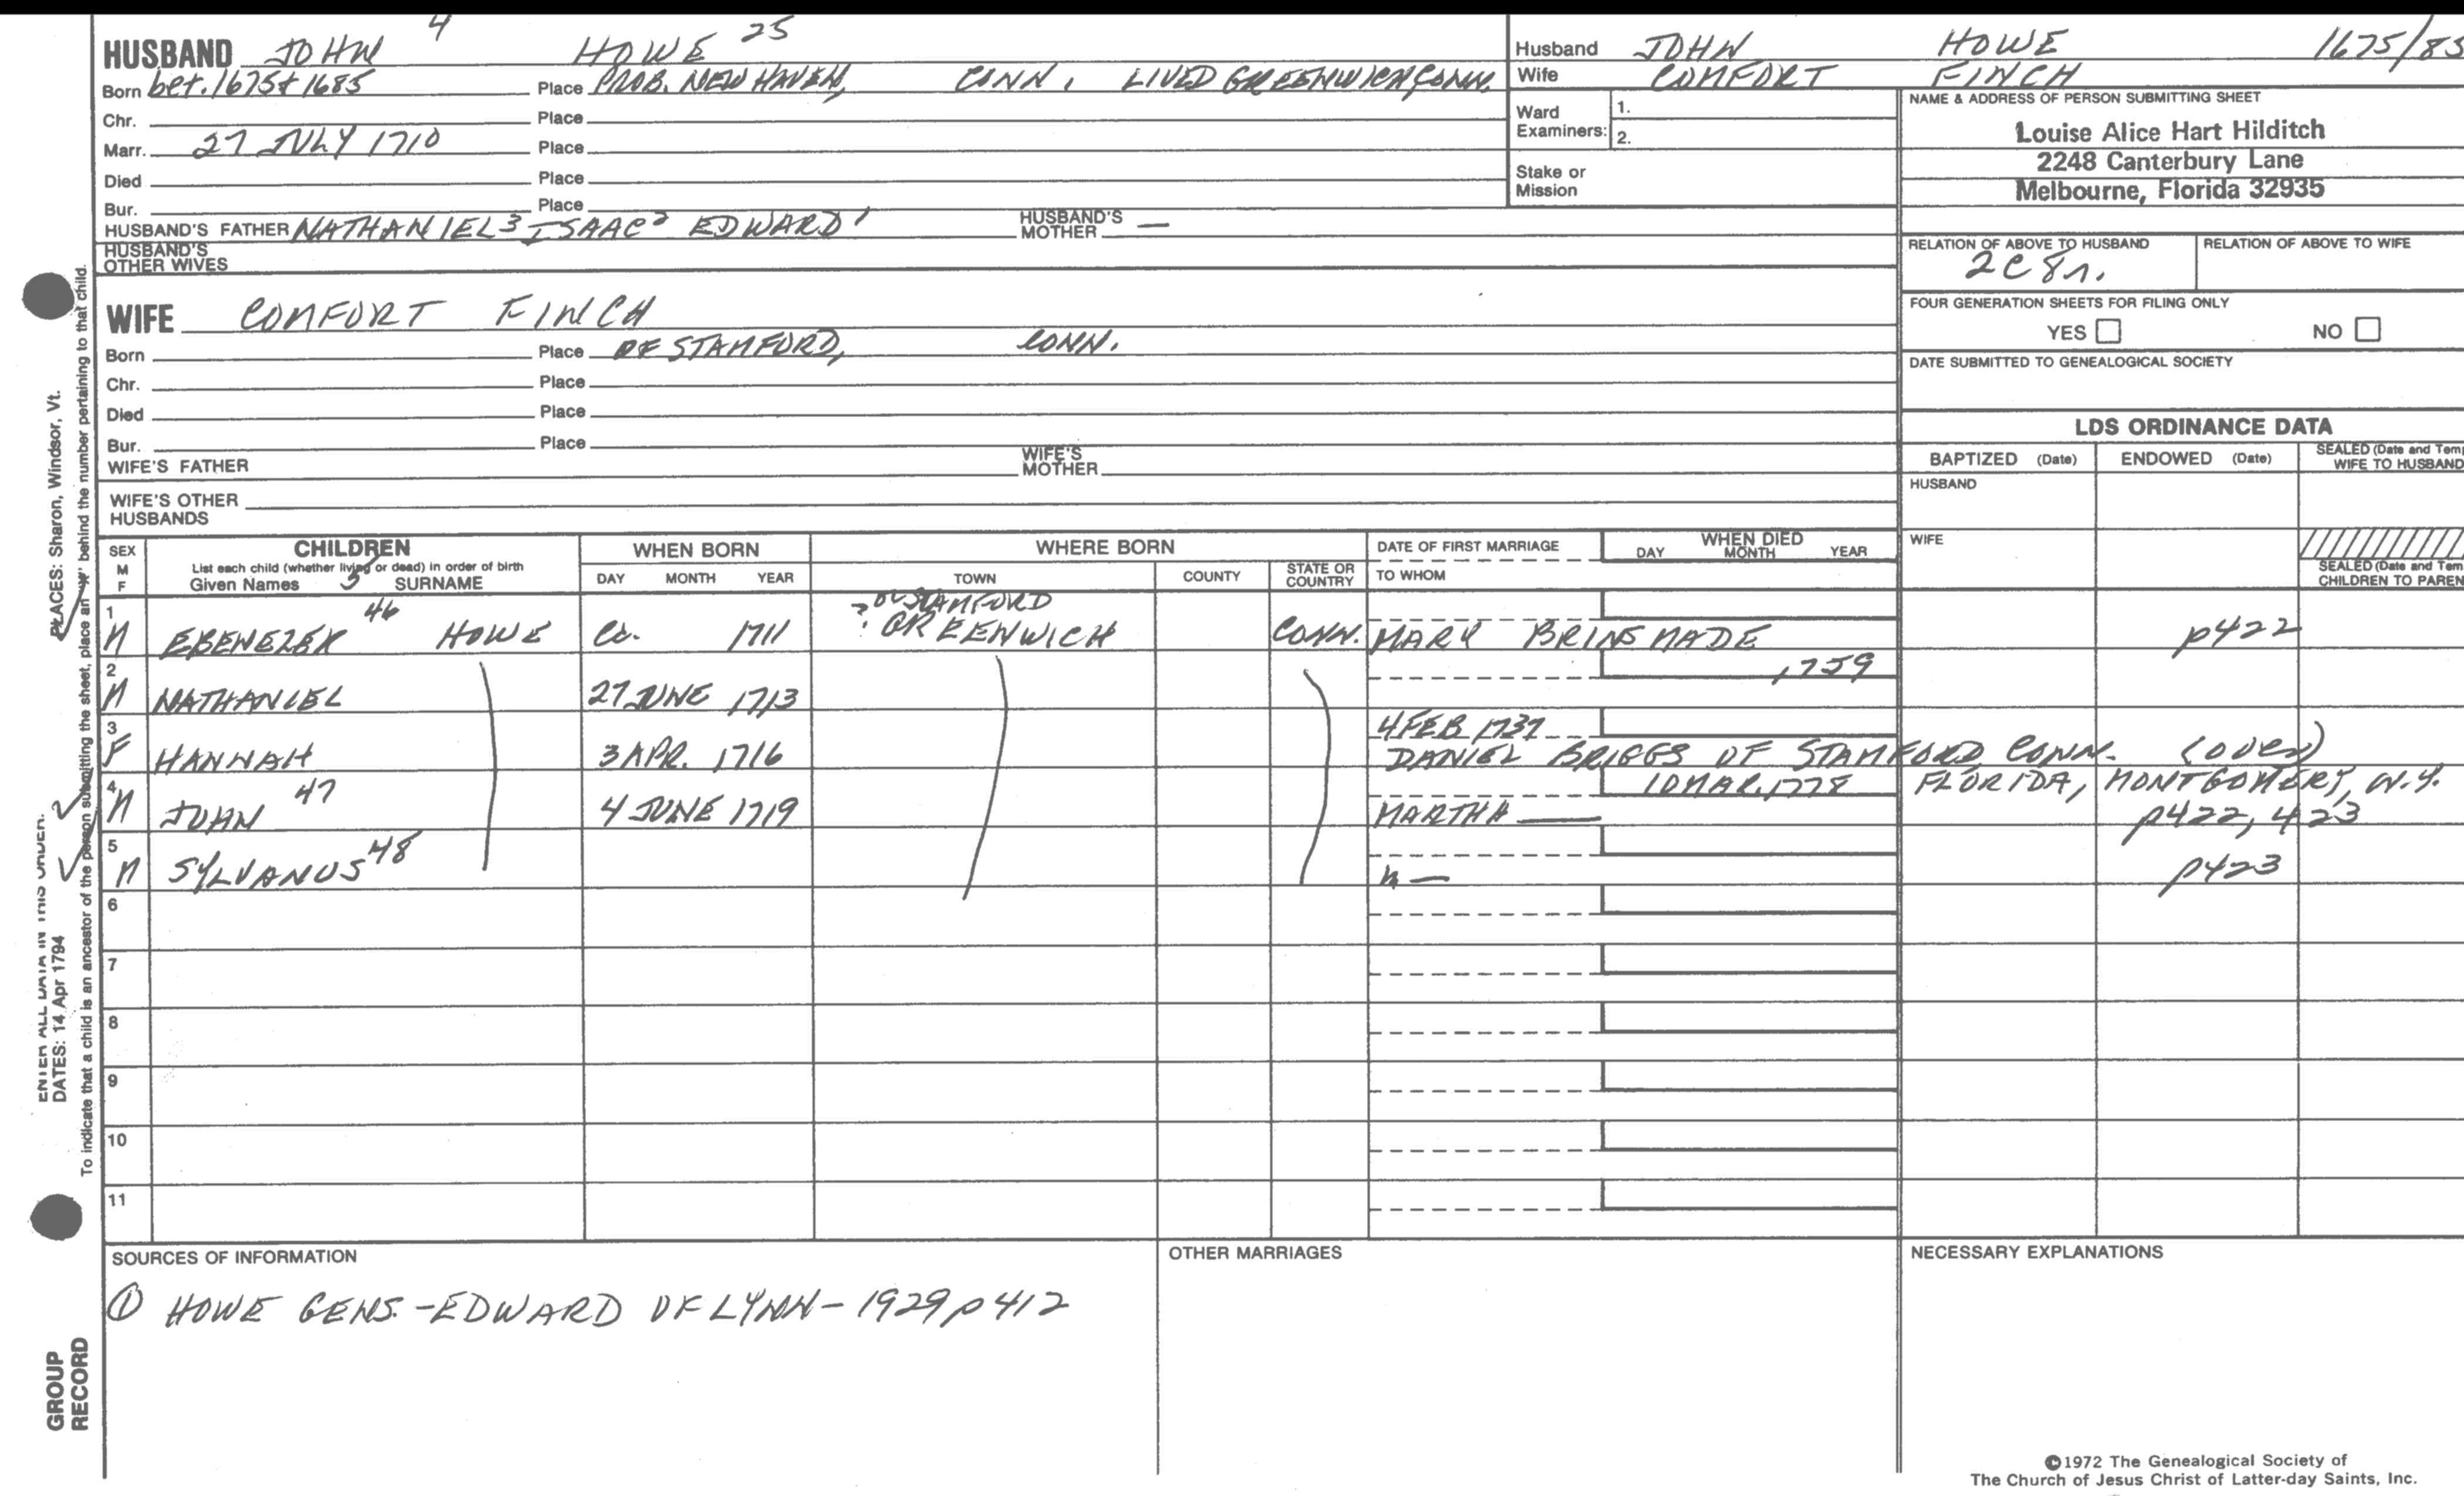 HUSBAND JOHN 4 HOWE 25
Born bet. 1675 & 1685 Place PROB. NEW HAVEN, CONN. LIVED GREENWICH, CONN.
Chr. Place
Marr. 27 JULY 1710 Place
Died Place
Bur. Place
HUSBAND'S FATHER NATHANIEL3 ISAAC2 EDWARD1 HUSBAND'S MOTHER —
HUSBAND'S OTHER WIVES
WIFE COMFORT FINCH
Born Place OF STAMFORD, CONN.
Chr. Place
Died Place
Bur. Place
WIFE'S FATHER WIFE'S MOTHER
WIFE'S OTHER HUSBANDS
Husband JOHN HOWE 1675/85
Wife COMFORT FINCH
Ward Examiners: 1.
2.
Stake or Mission
NAME & ADDRESS OF PERSON SUBMITTING SHEET
Louise Alice Hart Hilditch
2248 Canterbury Lane
Melbourne, Florida 32935
RELATION OF ABOVE TO HUSBAND RELATION OF ABOVE TO WIFE
2C8r.
FOUR GENERATION SHEETS FOR FILING ONLY
YES NO
DATE SUBMITTED TO GENEALOGICAL SOCIETY
LDS ORDINANCE DATA
BAPTIZED (Date) ENDOWED (Date) SEALED (Date and Tem
WIFE TO HUSBAND
HUSBAND
WIFE
SEALED (Date and Tem
CHILDREN TO PAREN
SEX M F
CHILDREN
List each child (whether living or dead) in order of birth
Given Names 5 SURNAME
WHEN BORN
DAY MONTH YEAR
WHERE BORN
TOWN COUNTY STATE OR COUNTRY
DATE OF FIRST MARRIAGE
TO WHOM
WHEN DIED
DAY MONTH YEAR
1 M EBENEZER 46 HOWE Ca. 1711 ? or STAMFORD GREENWICH CONN. MARY BRINSMADE p422
2 M NATHANIEL 27 JUNE 1713 1759
3 F HANNAH 3 APR. 1716 4 FEB 1737
DANIEL BRIGGS OF STAMFORD CONN. (over)
4 M JOHN 47 4 JUNE 1719 10 MAR. 1778 FLORIDA, MONTGOMERY, N.Y.
MARTHA — p422, 423
5 M SYLVANUS 48 m — p423
6
7
8
9
10
11
SOURCES OF INFORMATION
① HOWE GENS. - EDWARD OF LYNN - 1929 p 412
OTHER MARRIAGES
NECESSARY EXPLANATIONS
©1972 The Genealogical Society of
The Church of Jesus Christ of Latter-day Saints, Inc.
PLACES: Sharon, Windsor, Vt.
ENTER ALL DATA IN THIS ORDER:
DATES: 14 Apr 1794
To indicate that a child is an ancestor of the person submitting the sheet, place an "X" behind the number pertaining to that child.
GROUP
RECORD